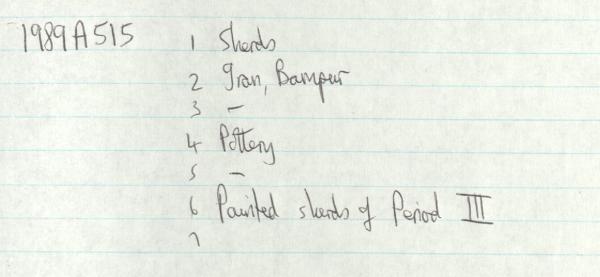 1989A515 1 Sherds
2 Iran, Bampur
3 –
4 Pottery
5 –
6 Painted sherds of Period III
7